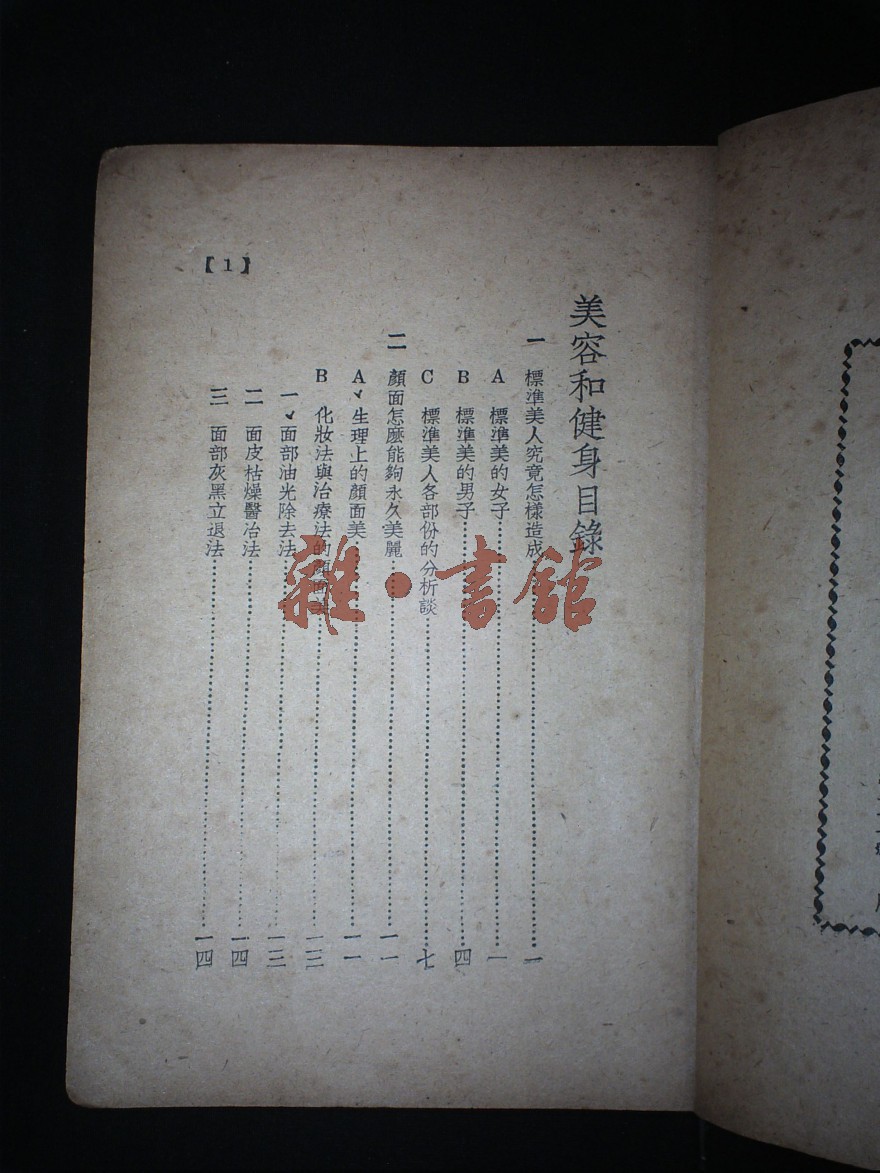 美容和健身目錄
一 標準美人究竟怎樣造成……一
A 標準美的女子……一
B 標準美的男子……四
C 標準美人各部份的分析談……七
二 顏面怎麽能夠永久美麗……一一
A、生理上的顏面美……一一
B 化妝法與治療法的顏面……一三
一、面部油光除去法……一三
二 面皮枯燥醫冶法……一四
三 面部灰黑立退法……一四
【1】
雜·書館